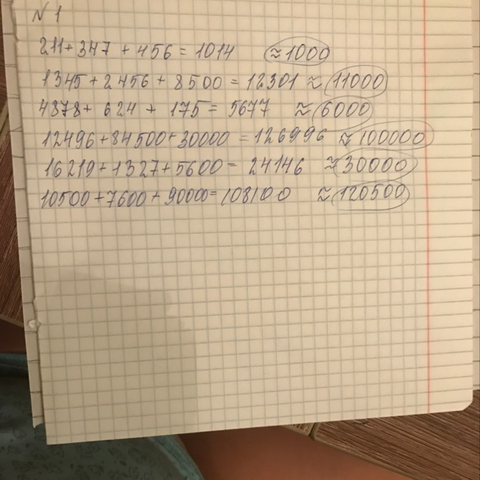 N 1
211 + 347 + 456 = 1014 ≈ 1000
1345 + 2456 + 8500 = 12301 ≈ 11000
4878 + 624 + 175 = 5677 ≈ 6000
12496 + 84500 + 30000 = 126996 ≈ 100000
16219 + 1327 + 5600 = 24146 ≈ 30000
10500 + 7600 + 90000 = 108100 ≈ 120500